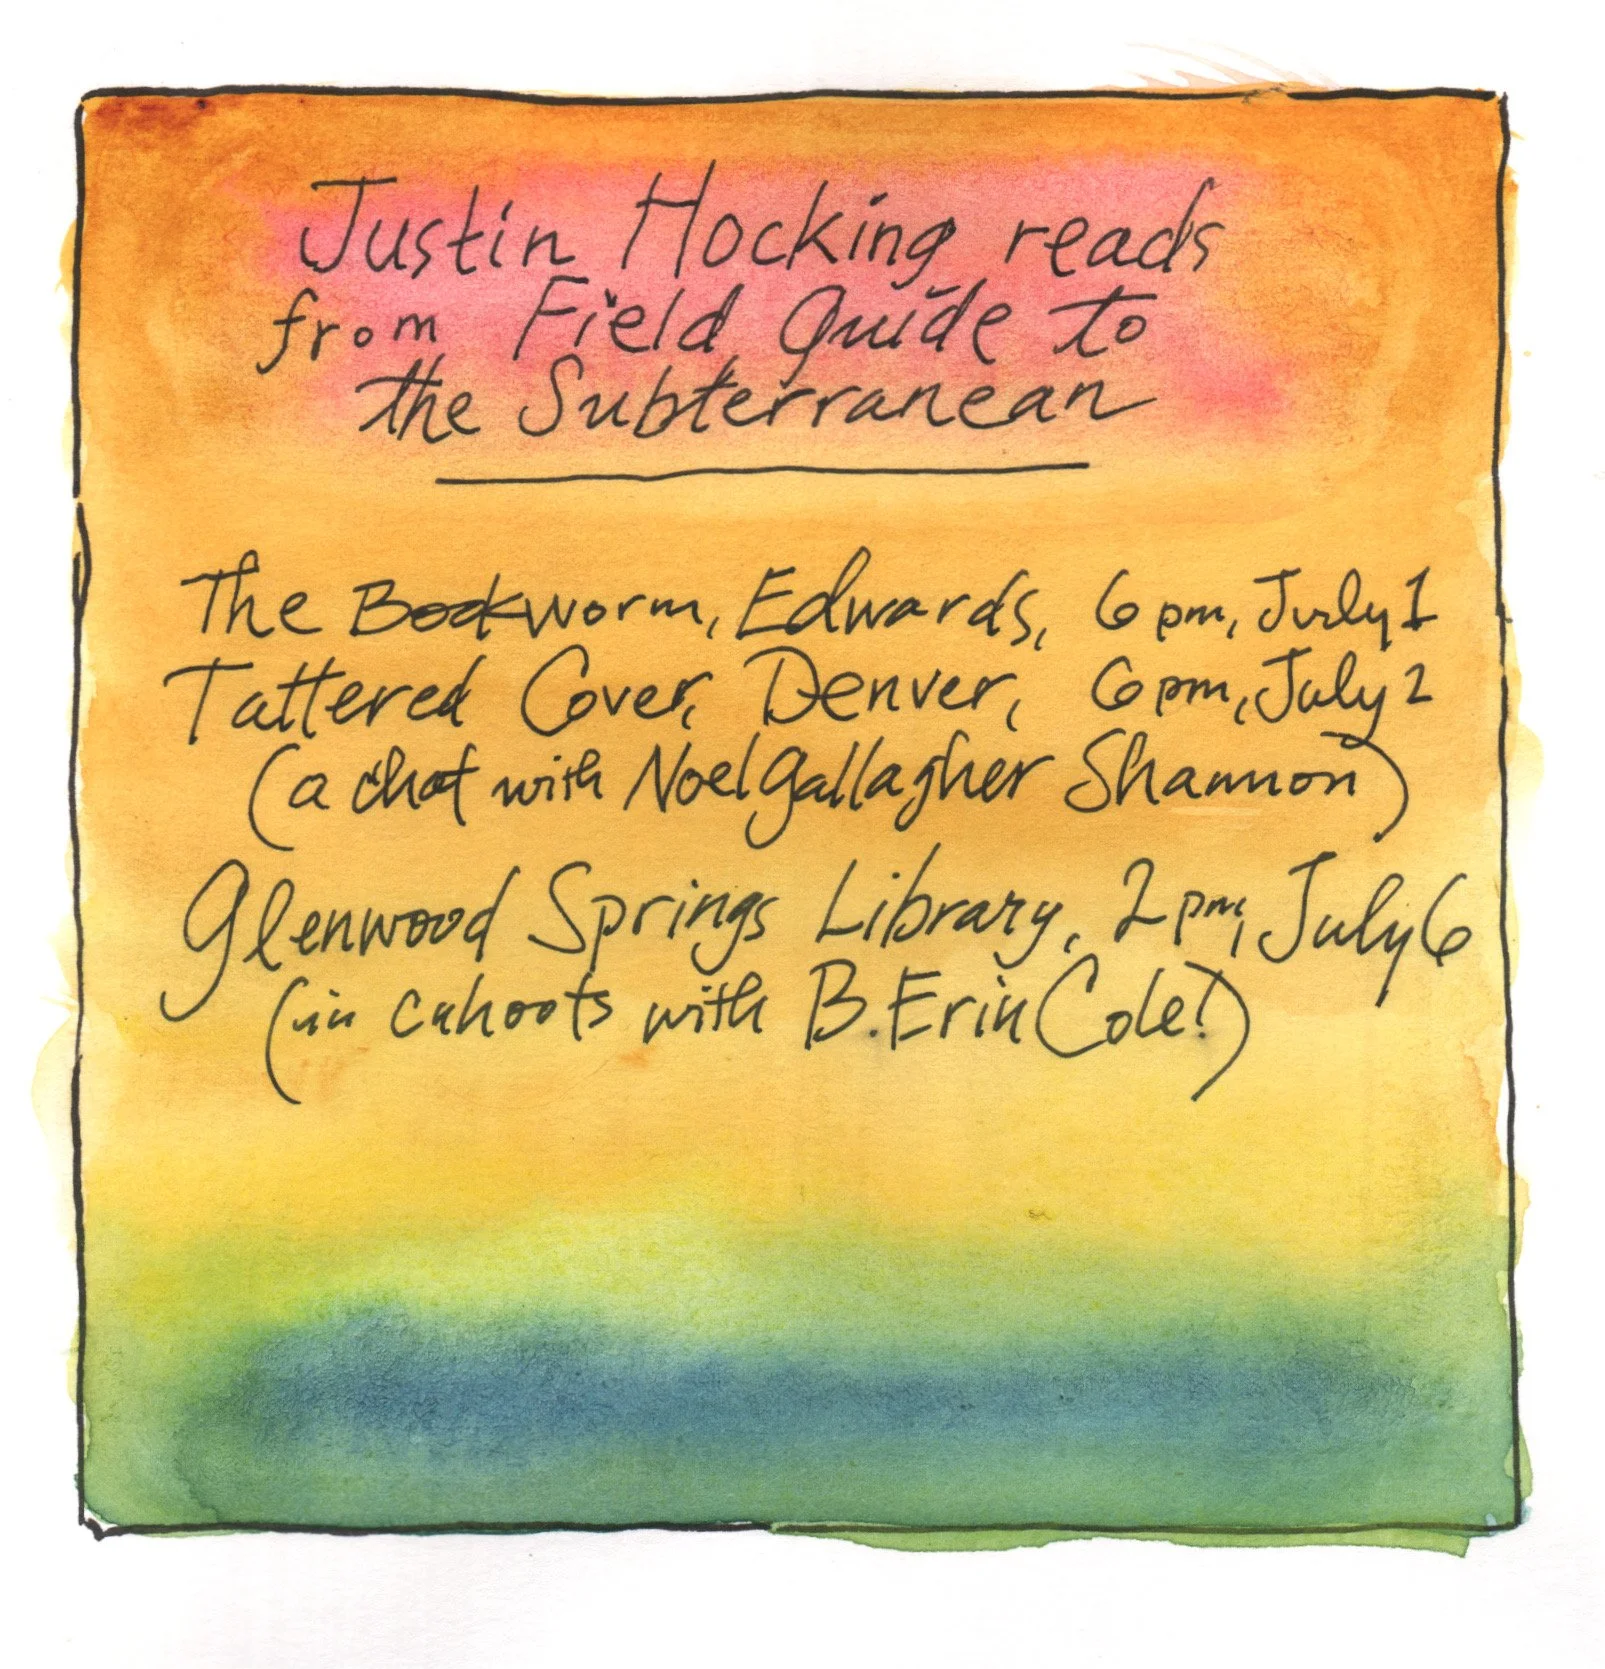 Justin Hocking reads
from Field Guide to
the Subterranean
The Bookworm, Edwards, 6pm, July 1
Tattered Cover, Denver, 6pm, July 2
(a chat with Noel Gallagher Shannon)
Glenwood Springs Library, 2pm, July 6
(in cahoots with B. Erin Cole!)